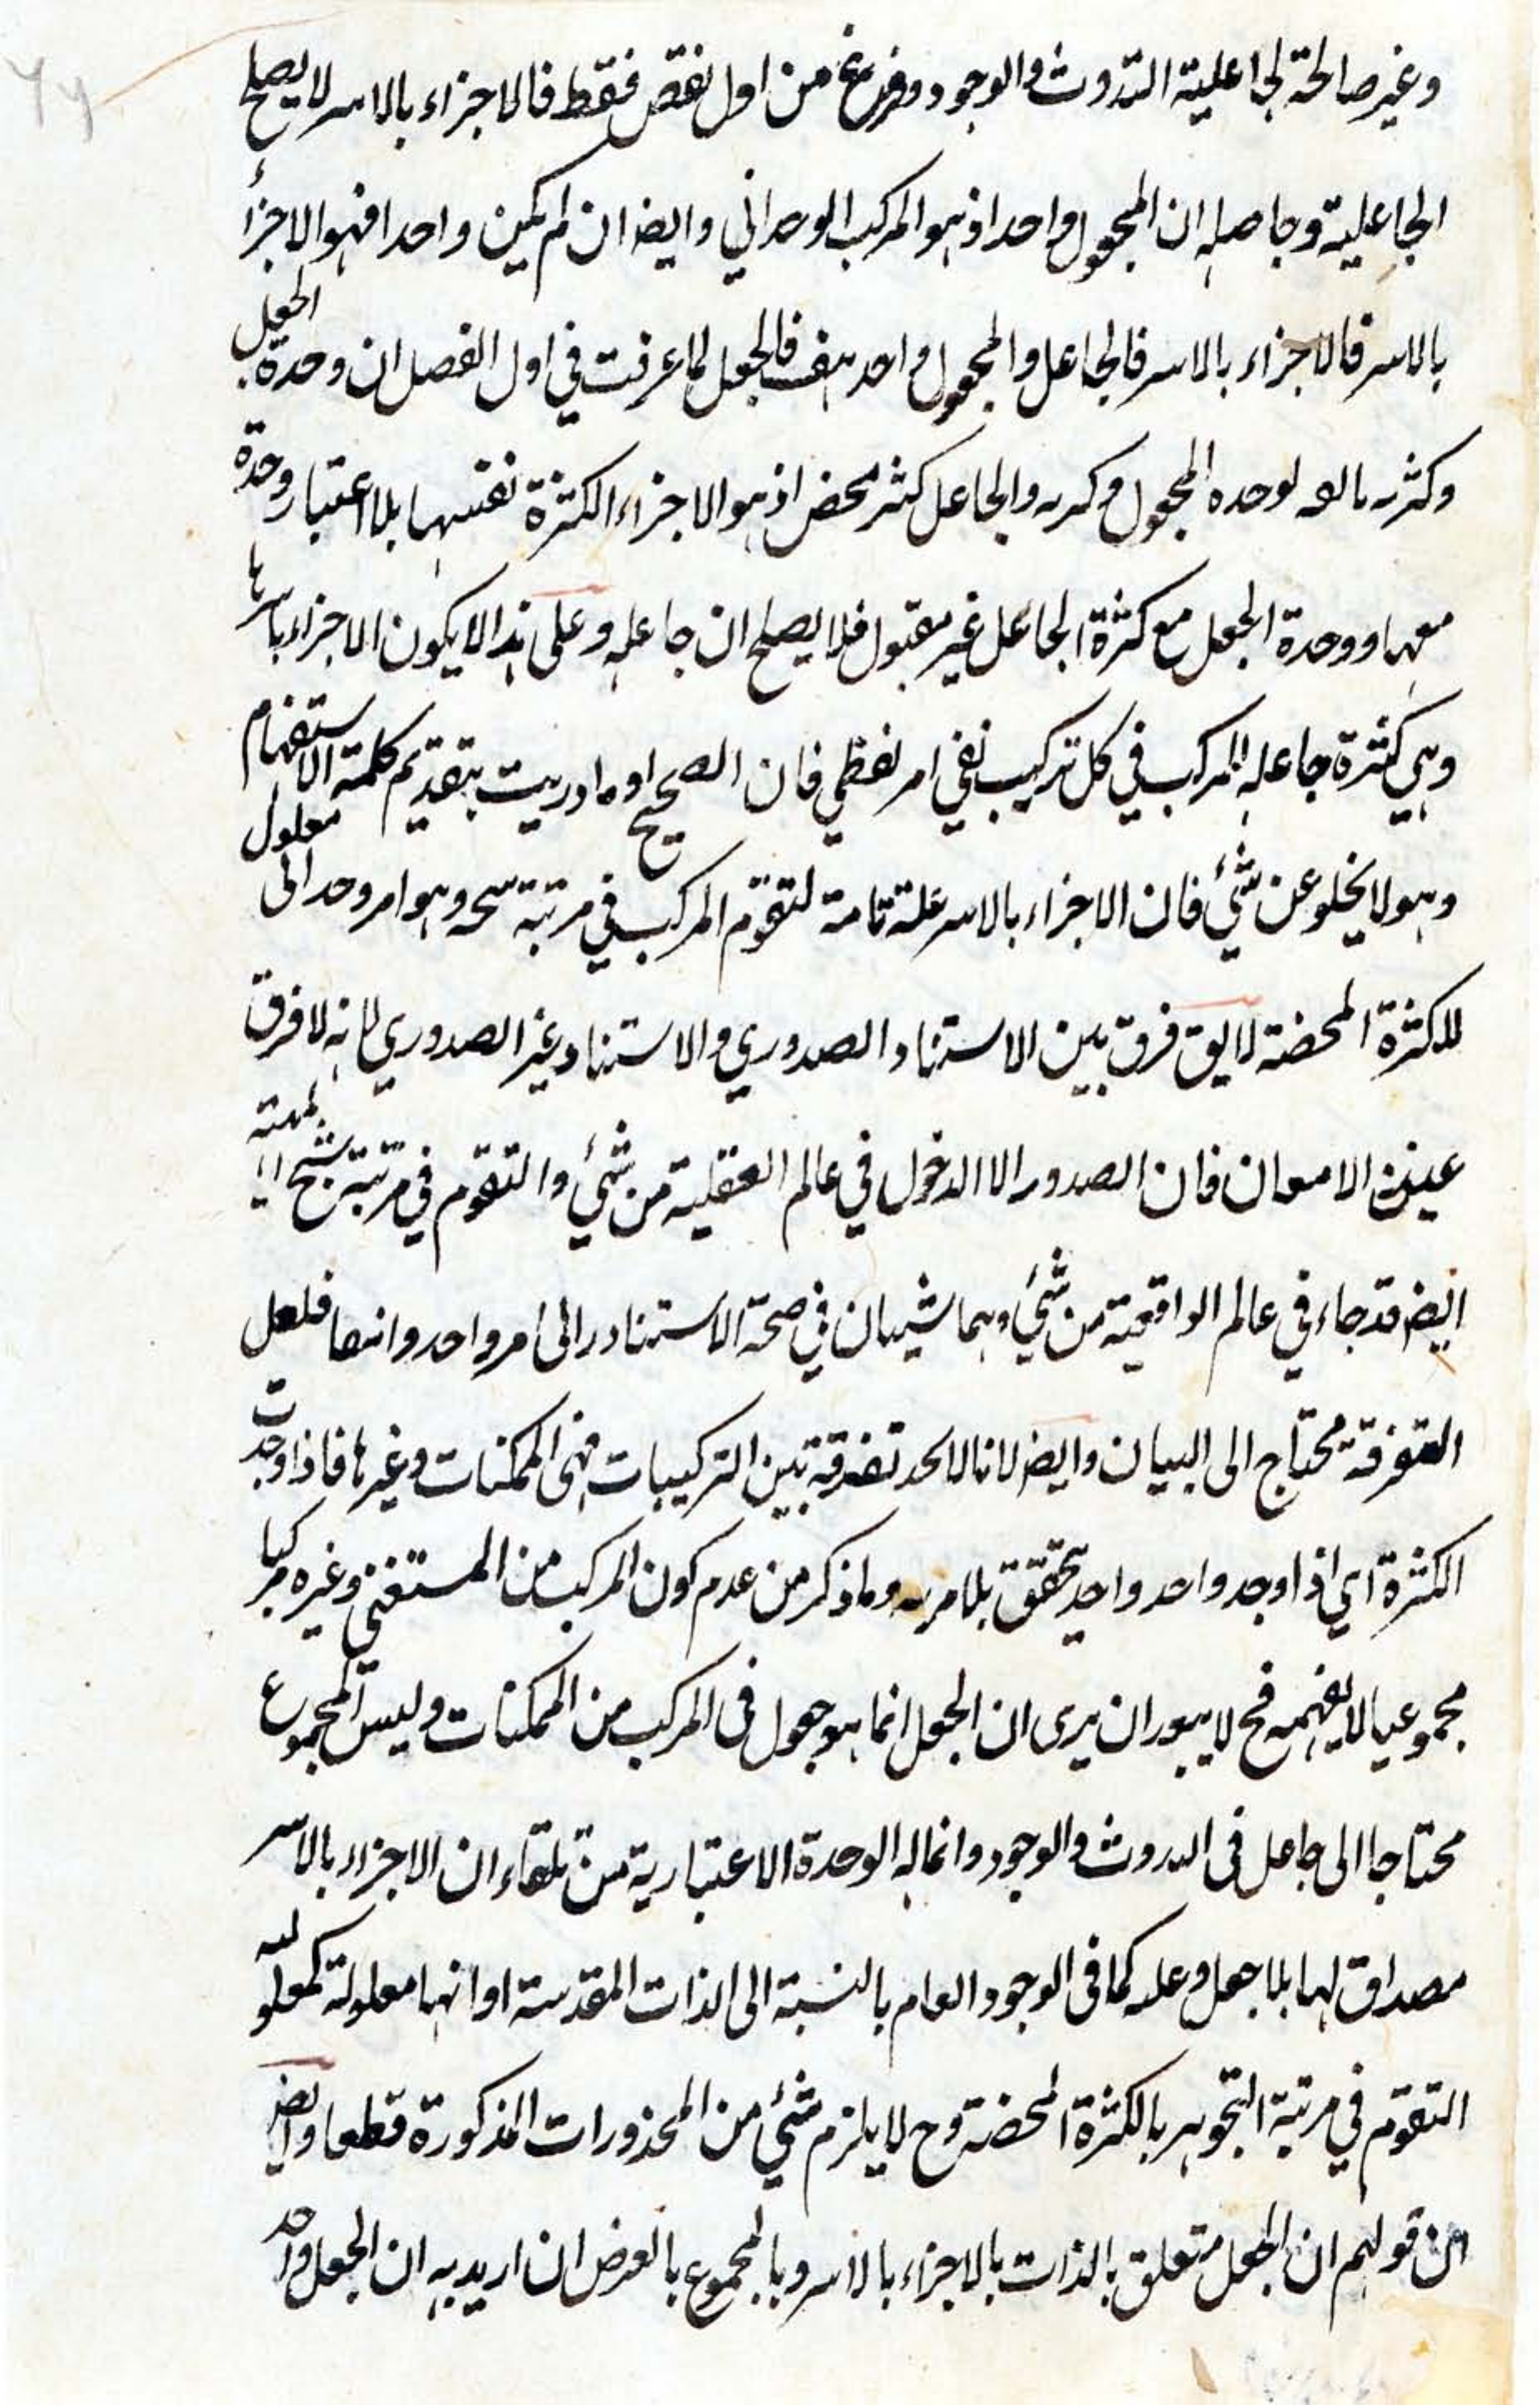 وغير صالحة لجاعلية التذوت والوجود وفرغ من اول نقص فقط فالاجزاء بالاسر لا يصلح
الجاعلية وحاصله ان المجعول واحد اذ هو المركب الوحداني وايضا ان لم يكن واحدا فهو الاجزأ
بالاسر فالاجزاء بالاسر فالجاعل والمجعول واحد هف فالجعل لما عرفت في اول الفصل ان وحدة الجعل
وكثرته لوحدة المجعول وكثرته والجاعل كثير محض اذ هو الاجزاء الكثرة نفسها بلا اعتبار وحدة
معها ووحدة الجعل مع كثرة الجاعل غير مقبول فلا يصلح ان جاعله وعلى هذا لا يكون الاجزاء باسرها
وهي كثرة جاعله المركب في كل تركيب نفي امر لفظي فان الصحيح او ما دريت بتقديم كلمة الاستفهام
وهو لا يخلو عن شئ فان الاجزاء بالاسر علة تامة لتقوم المركب في مرتبة سنخه وهو امر وحداني معلول
للكثرة المحضة لا يق فرق بين الاستناد الصدوري والاستناد غير الصدوري لانه لا فرق
عين الامعان فان الصدور الا الدخول في عالم العقلية من شئ والتقوم في مرتبة
ايض قد جاء في عالم الواقعية من شئ وهما شيان في صحة الاستناد الى امر واحد وانتفا فلعل
التفرقة محتاج الى البيان وايض لانا لا نجد تفرقة بين التركيبات من الممكنات وغيرها فاذا وجدت
الكثرة اي اذا وجد واحد واحد يتحقق بلا مرية وما ذكر من عدم كون المركب من المستغني وغيره مركبا
مجموعيا لا يفهمه فح لا يبور ان يرى ان الجعل انما هو جعول في المركب من الممكنات وليس المجموع
محتاجا الى جاعل في التذوت والوجود وانما له الوحدة الاعتبارية من تلقاء ان الاجزاء بالاسر
مصداق لها بلا جعل وعلة كما في الوجود العام بالنسبة الى الذات المقدسة او انها معلولة كمعلولية
التقوم في مرتبة التجوهر بالكثرة المحضة وح لا يلزم شئ من المحذورات المذكورة قطعا وايض
من قولهم ان الجعل متعلق بالذات بالاجزاء بالاسر وبالمجموع بالعرض ان اريد به ان الجعل واحد